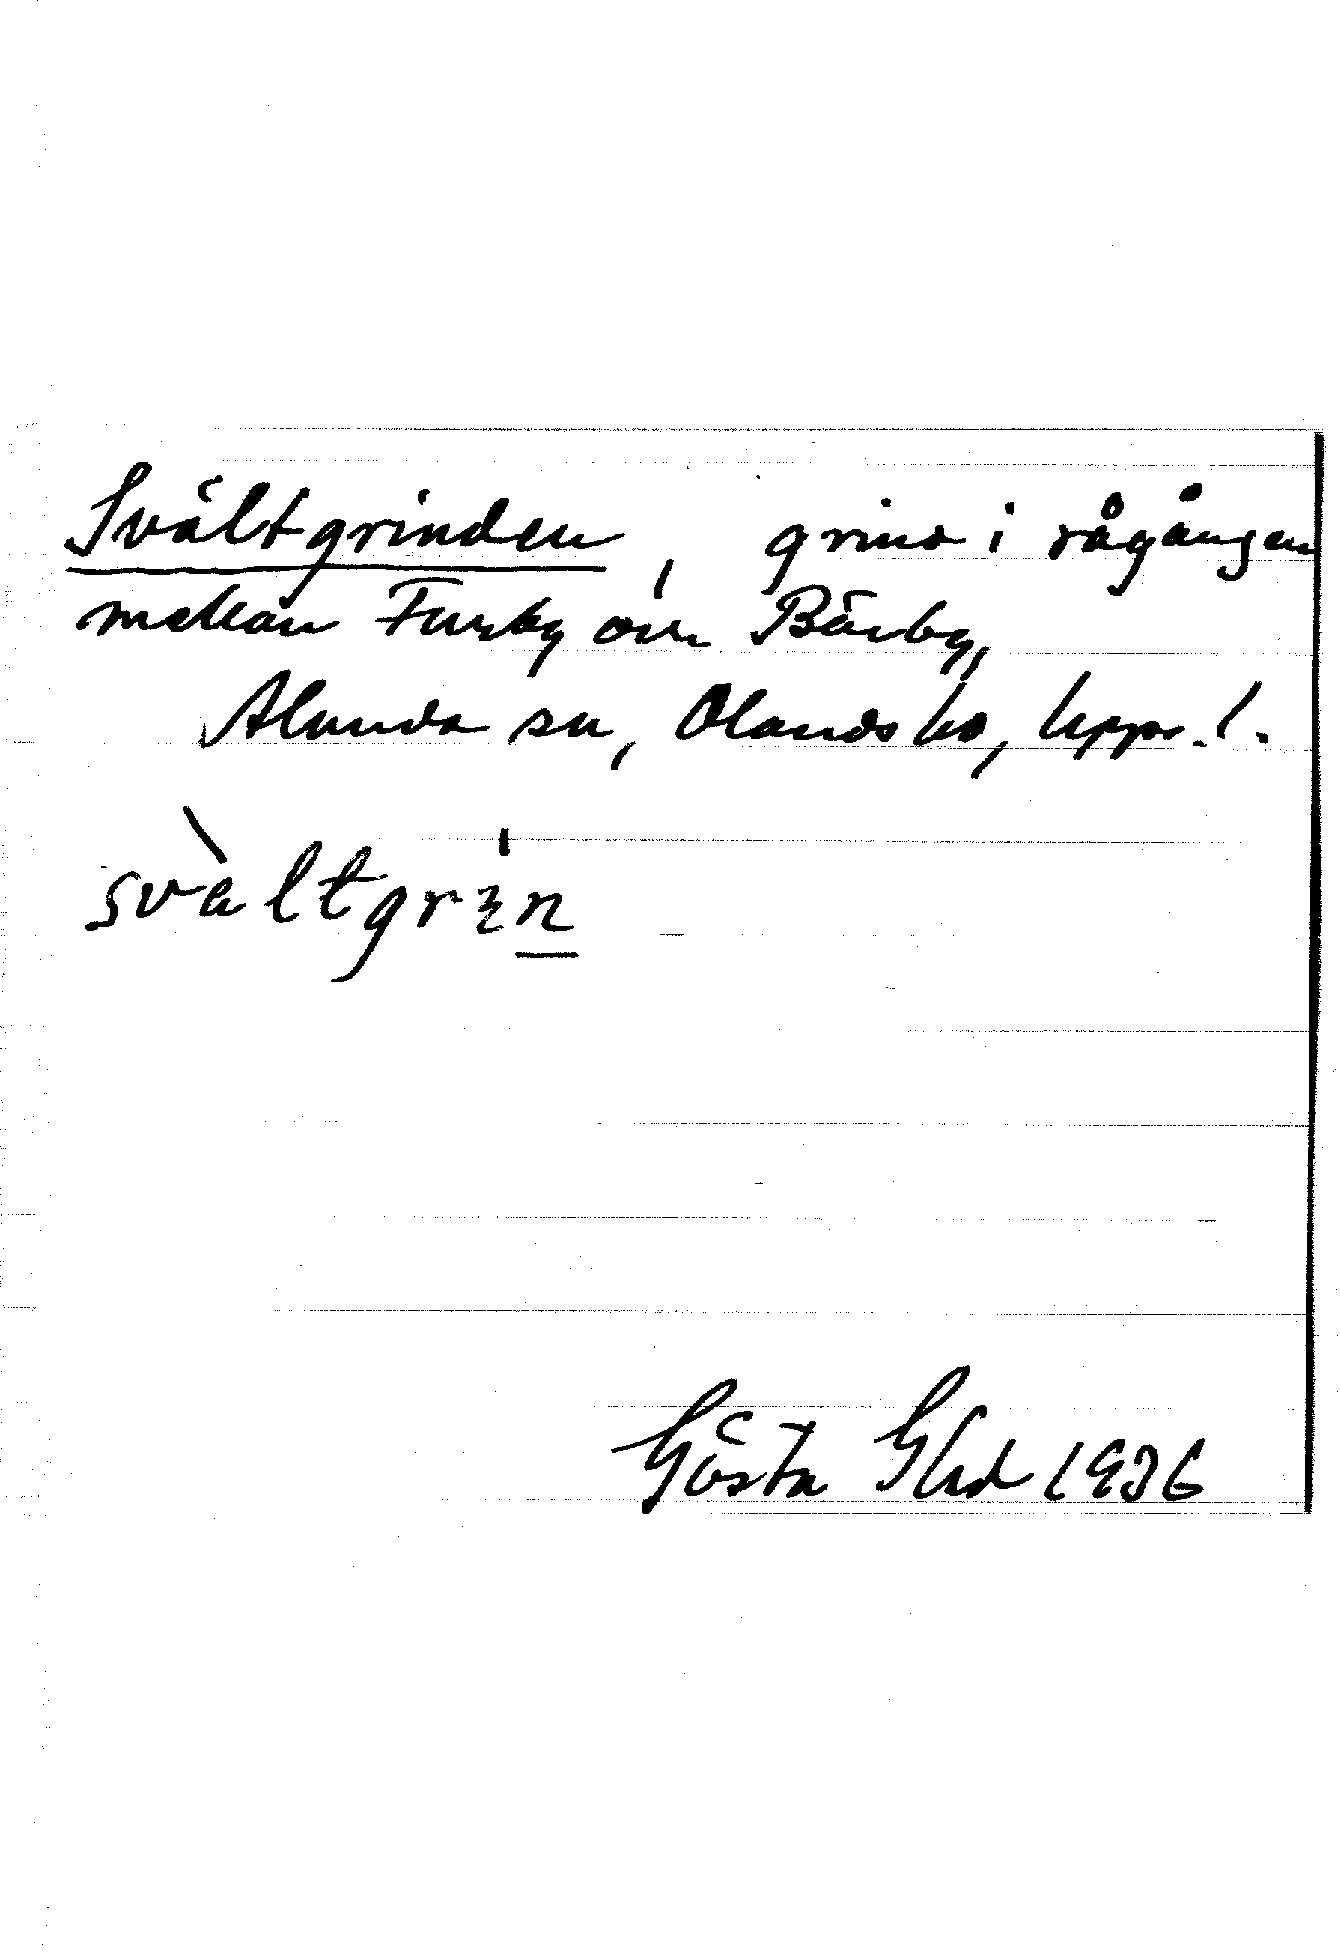 Svältgrinden, grind i rågången
mellan Foxby och Bärby,
Alunda sn, Olands hd, Upps. l.
svàltgrın
Gösta Glad 1936